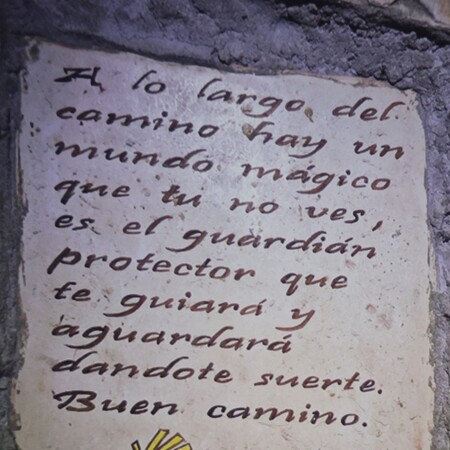 A lo largo del
camino hay un
mundo mágico
que tu no ves,
es el guardián
protector que
te guiará y
aguardará
dandote suerte.
Buen camino.